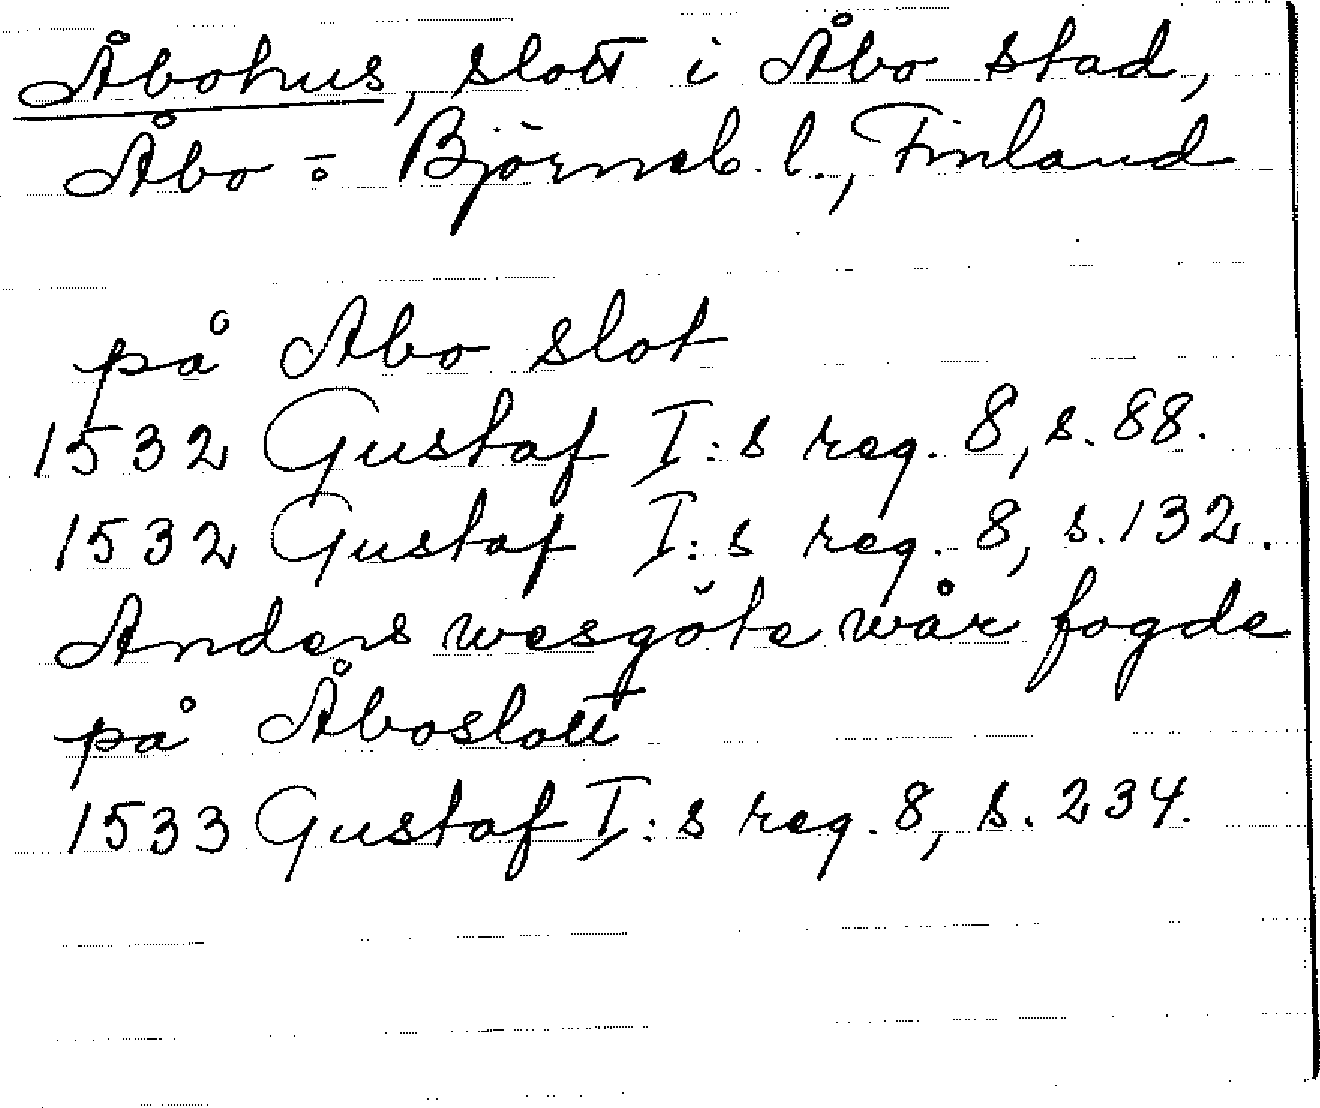 Åbohus, slott i Åbo stad,
Åbo - o. Björneb. l., Finland
på Abo slot
1532 Gustaf I:s reg. 8, s. 88.
1532 Gustaf I:s reg. 8, s. 132.
Anders wesgöte wår fogde
på Åboslott
1533 Gustaf I:s reg. 8, s. 234.